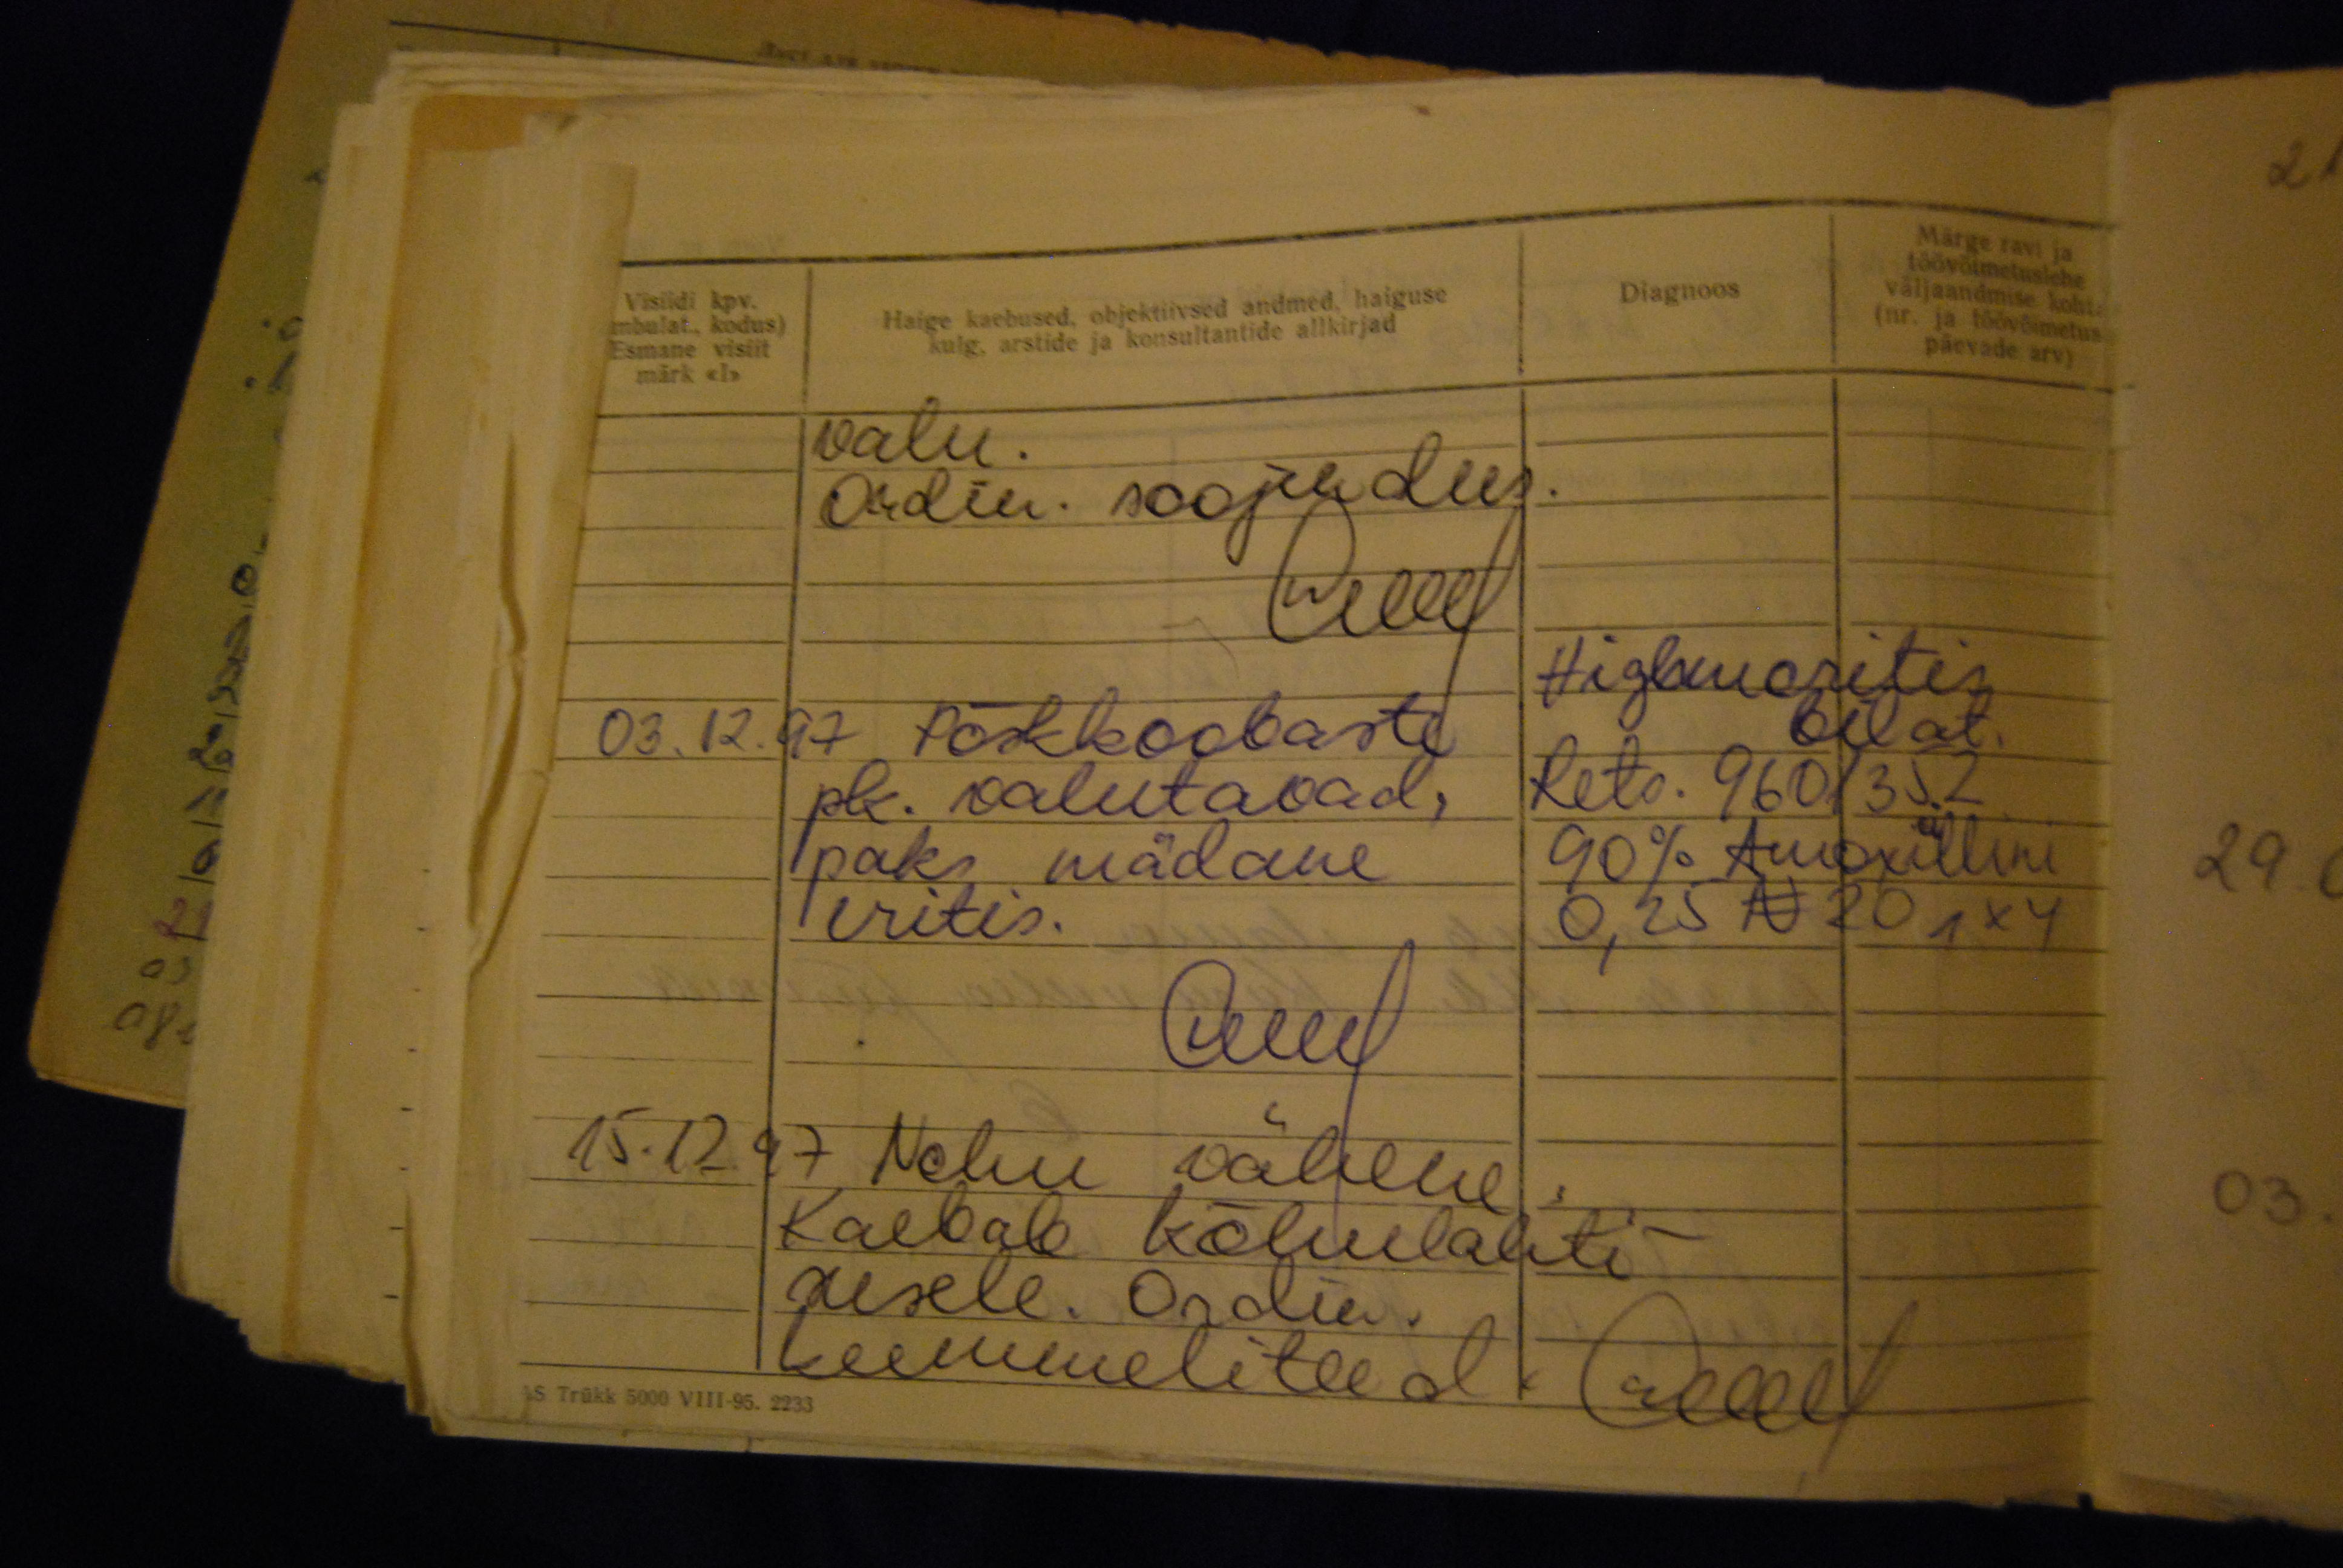 Visiidi kpv.
mbulat., kodus)
Esmane visiit
märk «I»
Haige kaebused, objektiivsed andmed, haiguse
kulg, arstide ja konsultantide allkirjad
Diagnoos
Märge ravi ja
töövõimetuslehe
väljaandmise koht
(nr. ja töövõimetus
päevade arv)
valu.
Ordin. soojendus.
Highmoritis
bilat.
03.12.97 Põskkoobaste
pk. valutavad,
paks mädane
eritis.
Rets. 960/352
90% Amoxicillini
0,25 N 20 1x4
15.12.97 Nohu vähene.
Kaebab kõhulahti-
susele. Ordin.
kummeliteed.
AS Trükk 5000 VIII-95. 2233
21
29.0
03.